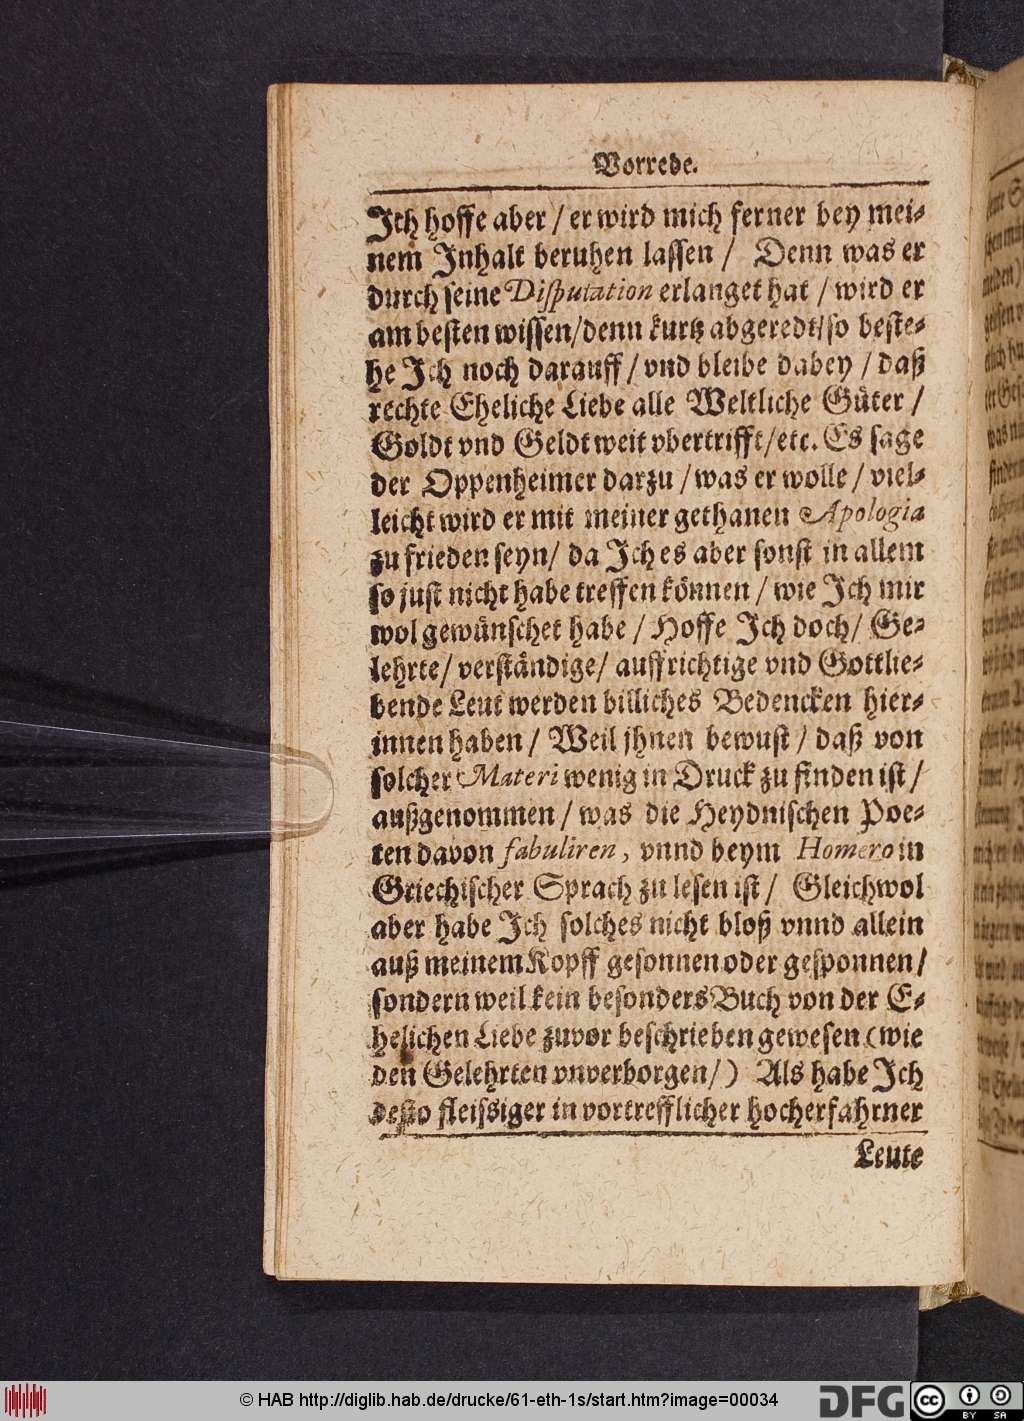 Vorrede.
Ich hoffe aber / er wird mich ferner bey mei-
nem Inhalt beruhen lassen / Denn was er
durch seine Disputation erlanget hat / wird er
am besten wissen/denn kurtz abgeredt/so beste-
he Ich noch darauff / vnd bleibe dabey / daß
rechte Eheliche Liebe alle Weltliche Güter /
Goldt vnd Geldt weit vbertrifft/etc. Es sage
der Oppenheimer darzu / was er wolle / viel-
leicht wird er mit meiner gethanen Apologia
zu frieden seyn/ da Ich es aber sonst in allem
so just nicht habe treffen können / wie Ich mir
wol gewünschet habe / Hoffe Ich doch/ Ge-
lehrte/ verständige/ auffrichtige vnd Gottlie-
bende Leut werden billiches Bedencken hier-
innen haben / Weil jhnen bewust / daß von
solcher Materi wenig in Druck zu finden ist /
außgenommen / was die Heydnischen Poe-
ten davon fabuliren, vnnd beym Homero in
Griechischer Sprach zu lesen ist / Gleichwol
aber habe Ich solches nicht bloß vnnd allein
auß meinem Kopff gesonnen oder gesponnen/
sondern weil kein besonders Buch von der E-
helichen Liebe zuvor beschrieben gewesen (wie
den Gelehrten vnverborgen/) Als habe Ich
desto fleissiger in vortrefflicher hocherfahrner
Leute
© HAB http://diglib.hab.de/drucke/61-eth-1s/start.htm?image=00034
DFG
cc BY SA